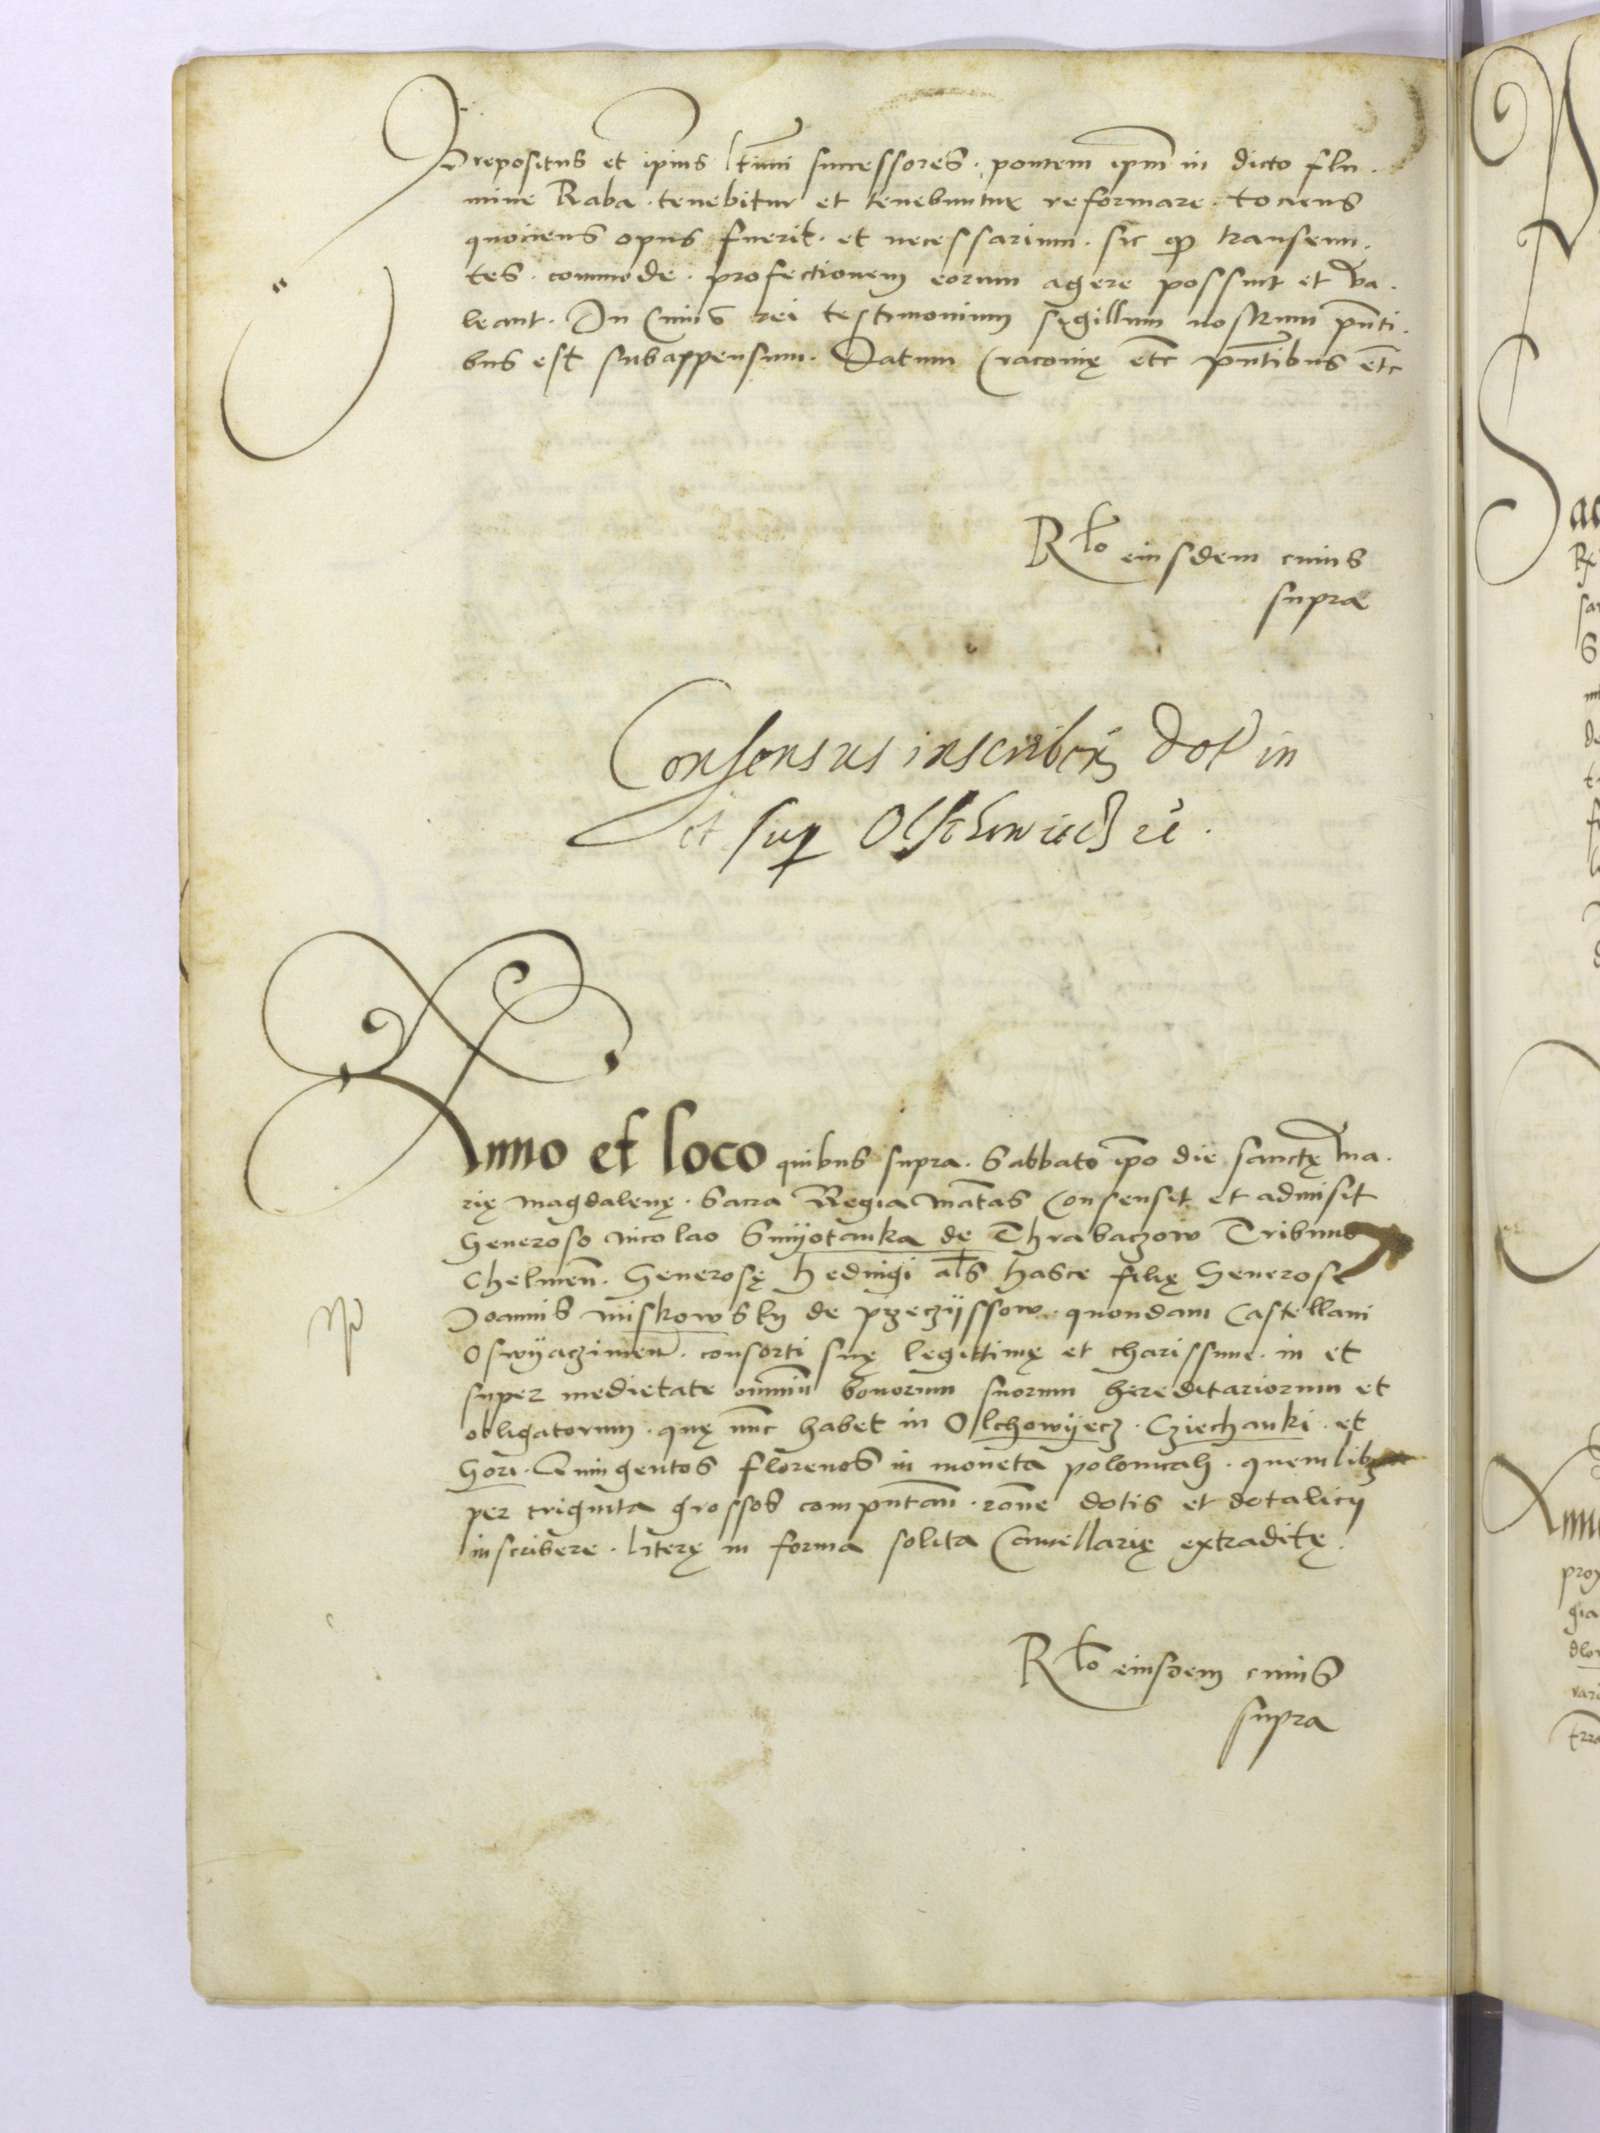 Prepositus et ipius ltimi successores · pontem ipm in dicto flu ·
mine Raba · tenebitur et tenebuntur reformare · tociens
quociens opus fuerit · et necessarium · sic qp transeun ·
tes · commode · profectionem eorum agere possint et va ·
leant · In Cuius rei testimonium sigillum nostrum pnti ·
bus est subappensum · Datum Cracovię etc pntibus etc
Rlo eiusdem cuius
supra
Consensus inscriben dot in
et sup Olschowiecz
Anno et loco quibus supra · Sabbato ipo die sanctę Ma ·
rię Magdalenę · Sacra Regia Mtas Consensit et admisit
Generoso Nicolao Smyotanka de Thrabaczow Tribuno
Chelmen · Generosę hedvigi als hasce filię Generosi
Joannis Miskowsky de Przeczyssow · quondam Castellani
Oswyaczimen · consorti suę legittimę et charissime · in et
super medietate omnium bonorum suorum hereditariorum et
obligatorum · quę nunc habet in Olchowyecz · Cziechanki · et
Gori · Quingentos florenos in moneta polonicali · quemlibet
per triginta grossos computan · rone dotis et dotalicy
inscribere · literę in forma solita Cancellarię extraditę ·
Rlo eiusdem cuius
supra